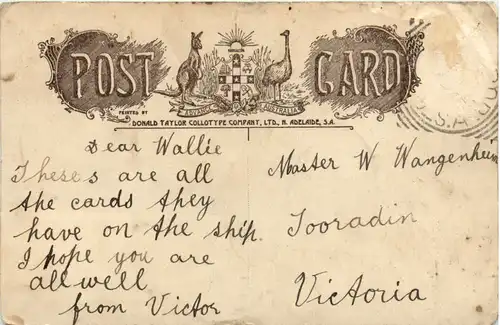 POST CARD
ADVANCE AUSTRALIA
PRINTED BY
DONALD TAYLOR COLLOTYPE COMPANY, LTD., N. ADELAIDE, S.A.
Dear Wallie
Theses are all
the cards they
have on the ship.
I hope you are
all well
from Victor
Master W Wangenheim
Tooradin
Victoria
S.A.